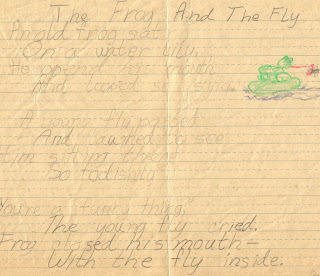 The Frog And The Fly
An old frog sat
On a water lily.
He opend his mouth
And looked so
A young fly passed
And laughed to see
Him siting there
So foolishly
You're a funny thing,"
The young fly cried.
Frog closed his mouth—
With the fly inside.